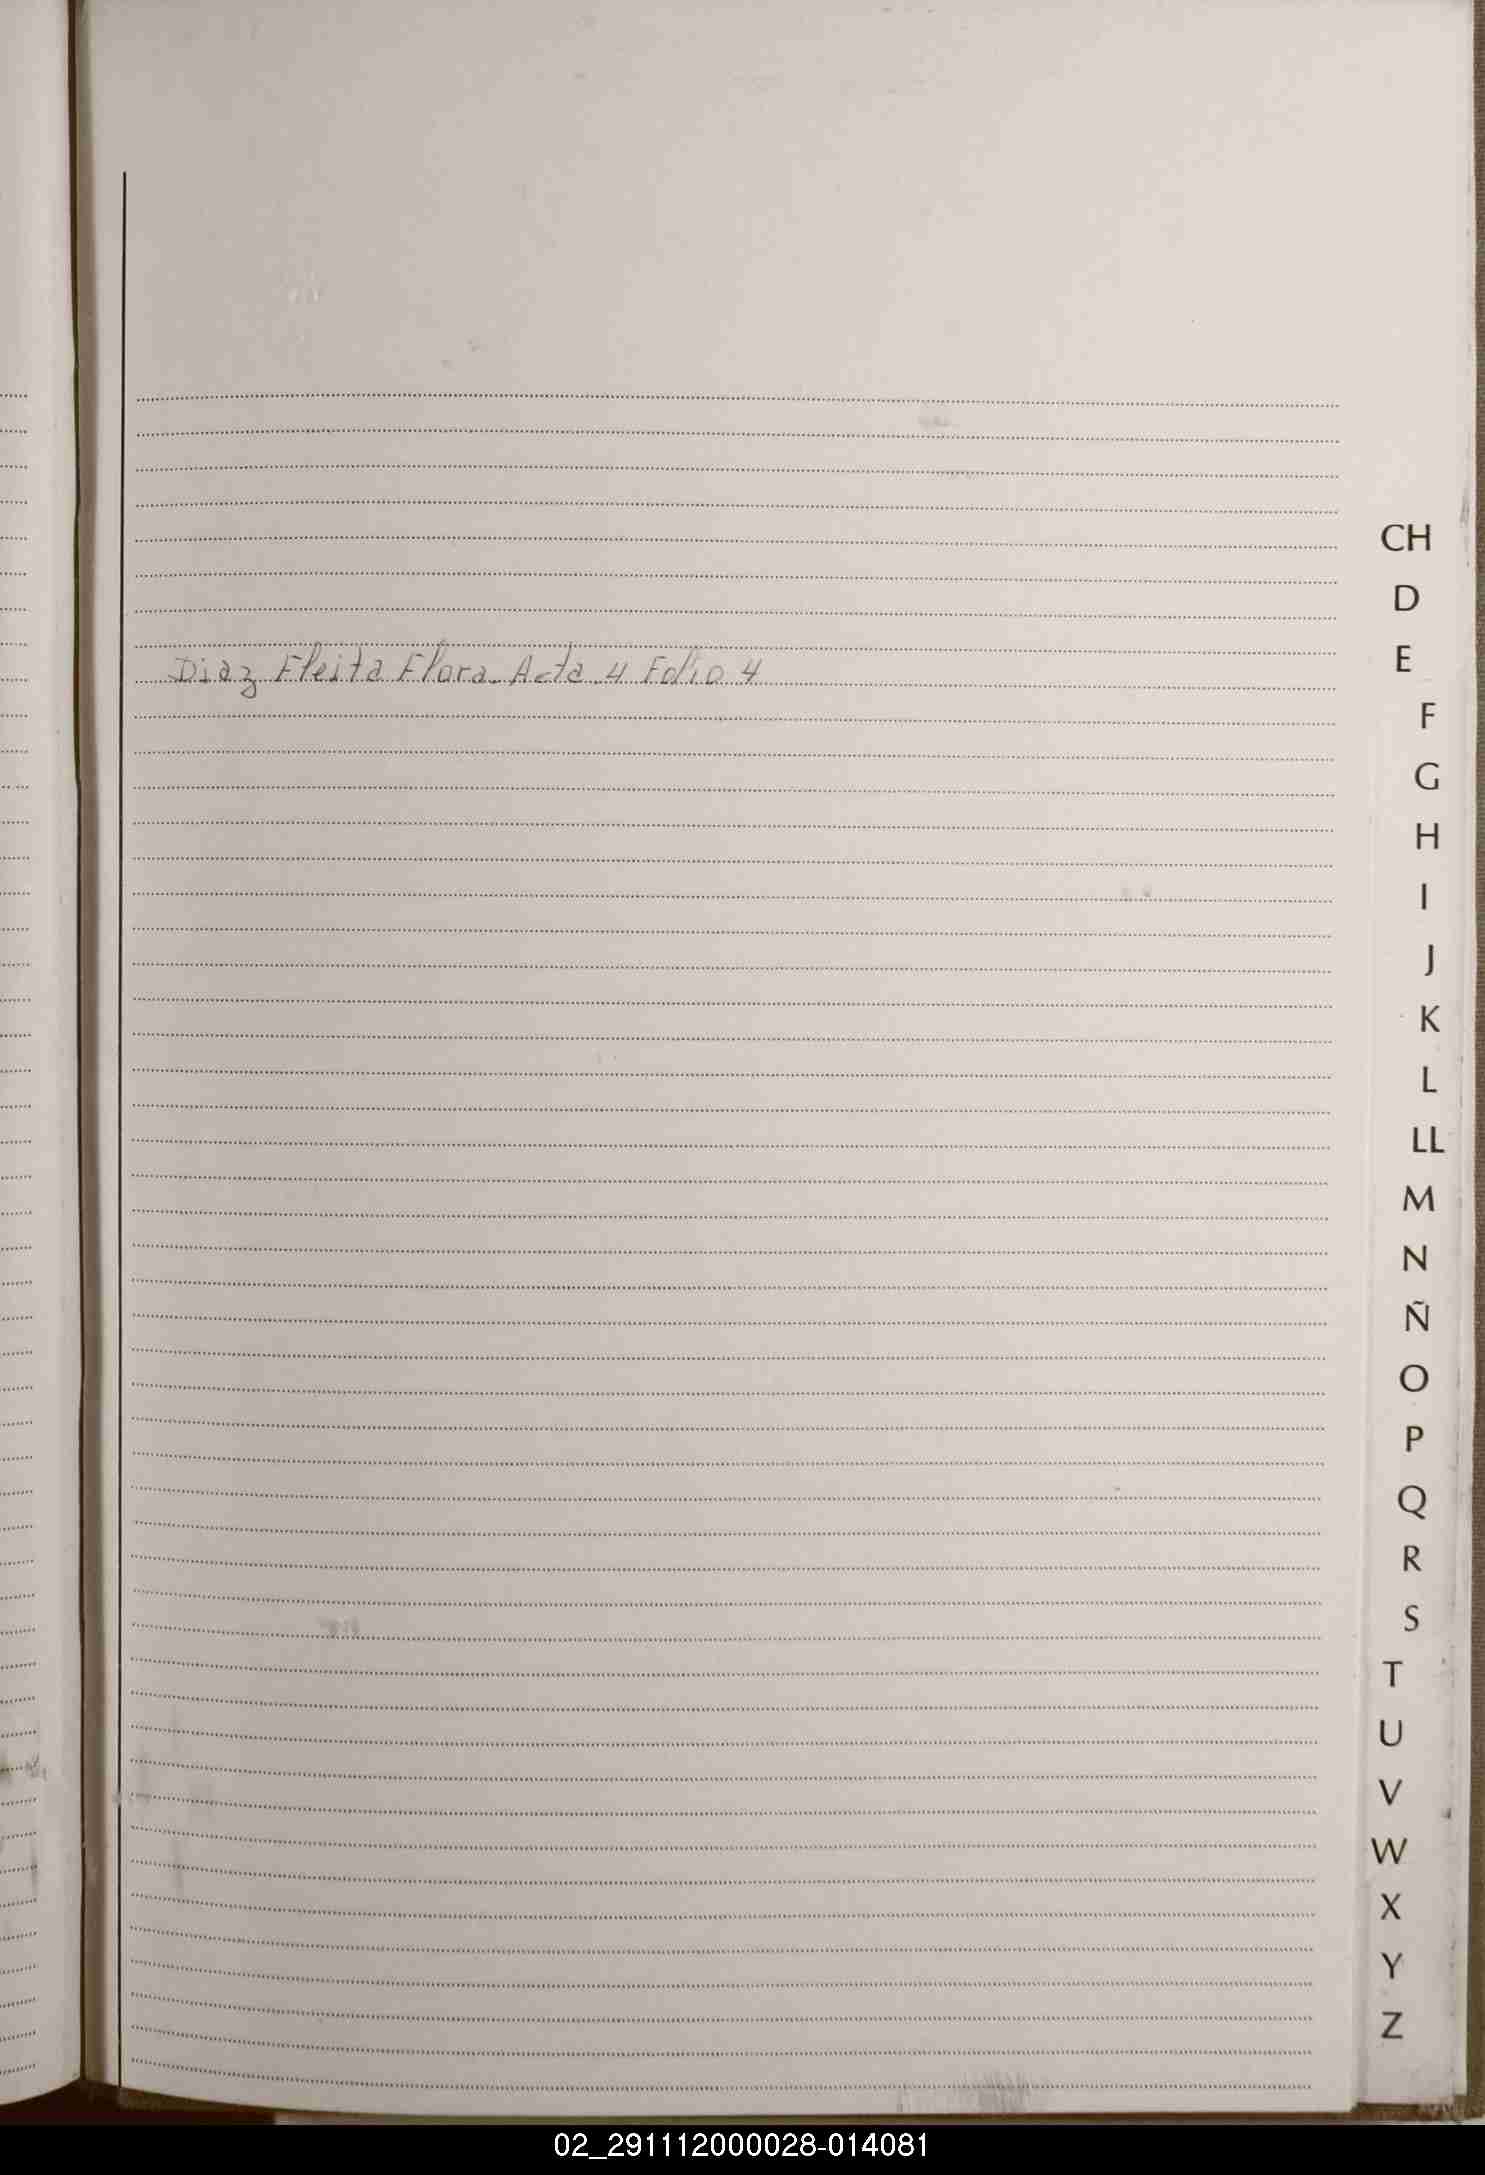 Diaz Fleita Flora. Acta 4 Folio 4
CH
D
E
F
G
H
I
J
K
L
LL
M
N
Ñ
O
P
Q
R
S
T
U
V
W
X
Y
Z
02_291112000028-014081